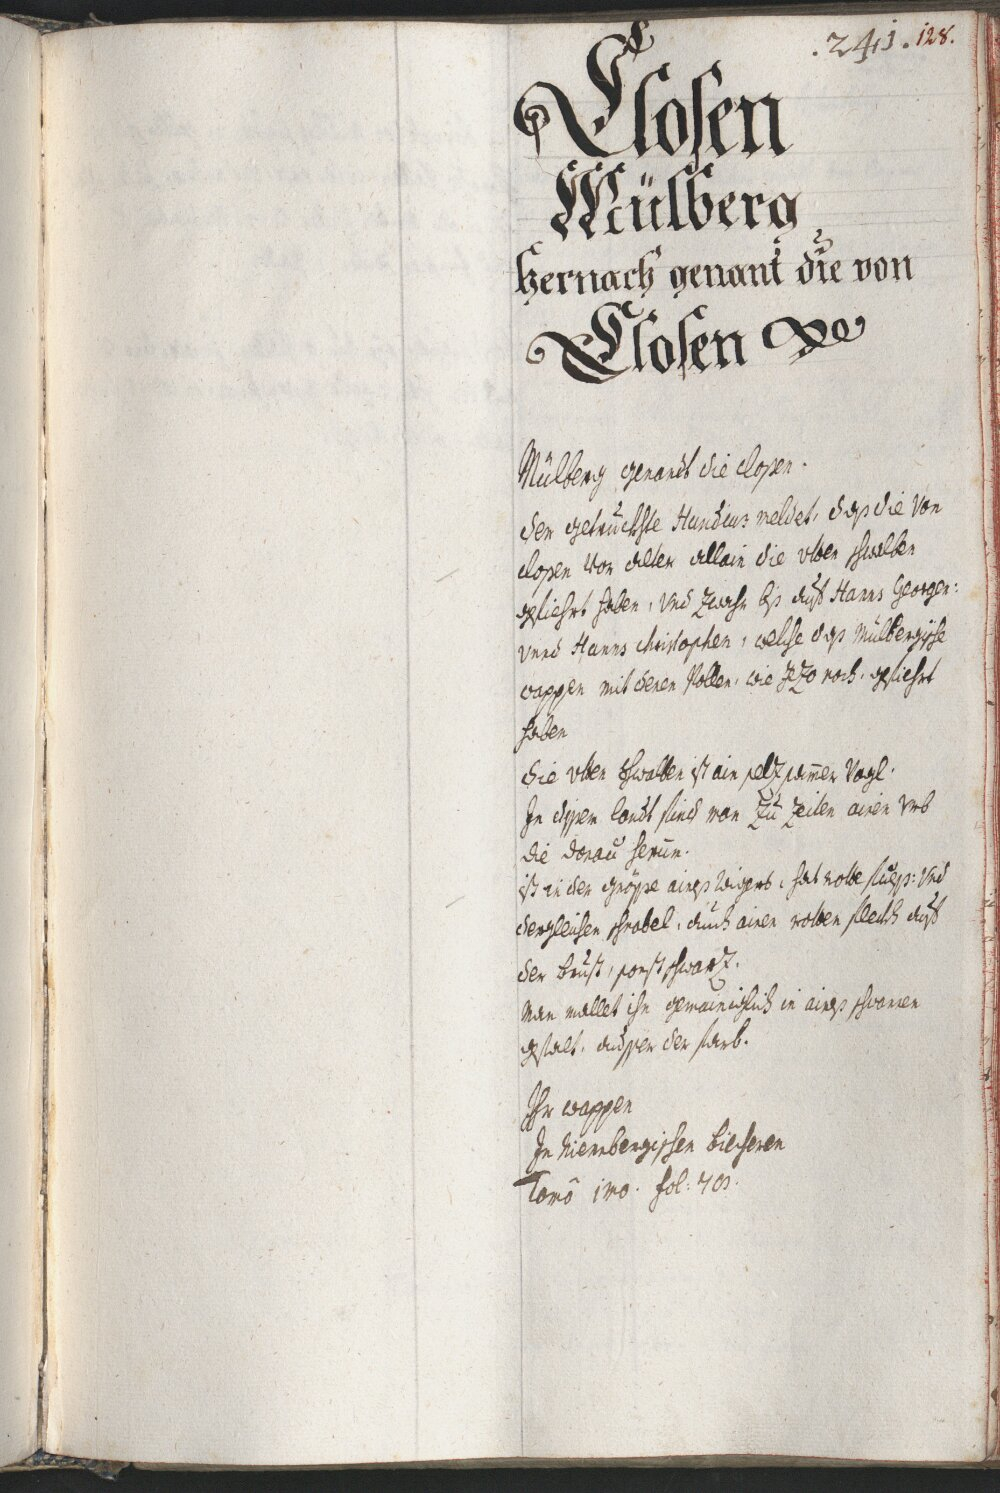 .241. 128.
Closen
Mülberg
hernach genant die von
Closen
Mülberg genandt die closen.
der getruckhte Hundius meldet, das die von
closen von alter allain die vlben schwalben
gefiehrt haben, vnd zwahr bis auf Hanns Georgen:
vnnd Hanns christophen, welche das Mülbergische
wappen mit denen Rollen, wie jezo noch, gefiehrt
haben
die vlben schwalben ist ain selzsamer Vogl.
In disem landt find man zu zeiten ainen vmb
die donau herum.
ist in der grösse aines , hat rothe fües: vnd
dergleichen schnabel, auch ainen rothen fleckh auf
der brust, sonst schwarz.
Man mallet ihn gemainiglich in aines schwanen
gstalt, ausser der farb.
Ihr wappen
In Niernbergischen biecheren
Tomo imo. fol: